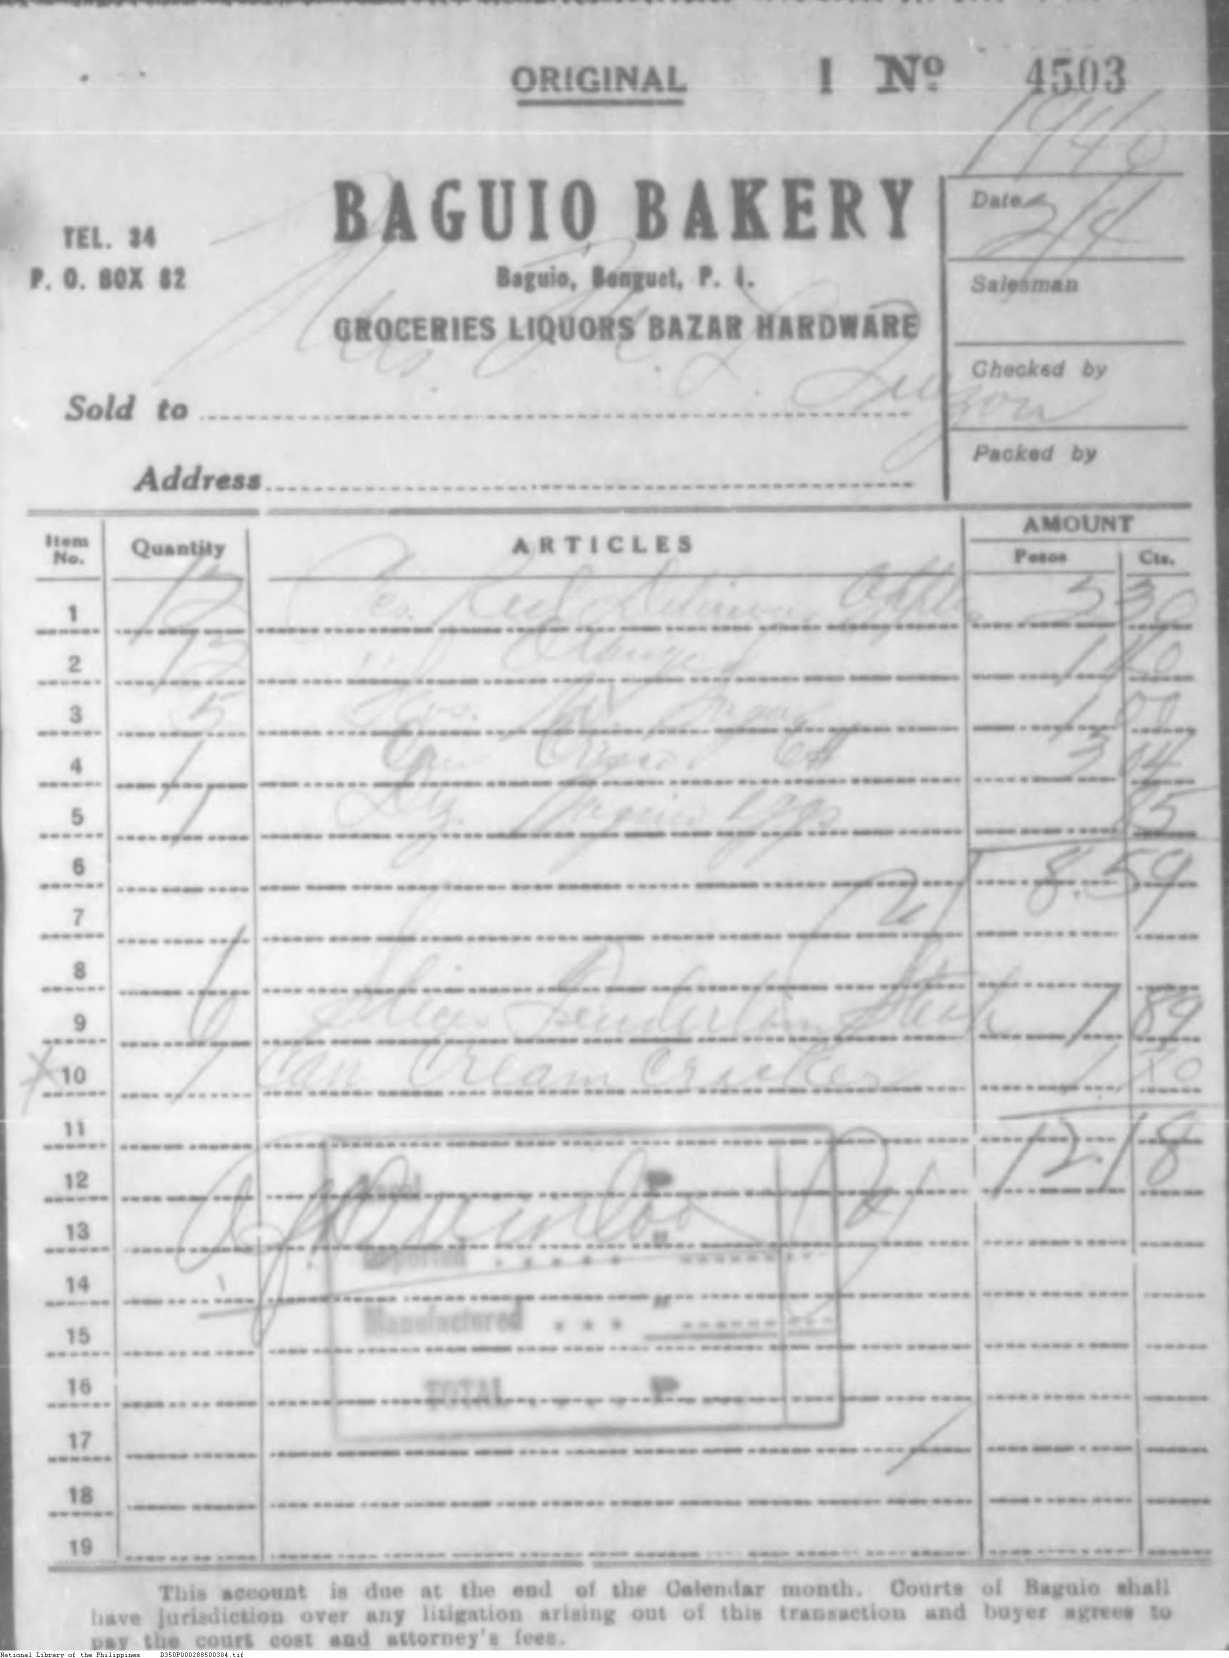 ORIGINAL I Nº 4503
1940
BAGUIO BAKERY
TEL. 34
P. O. BOX 82
Baguio, Benguet, P. I.
GROCERIES LIQUORS BAZAR HARDWARE
Date 2/4
Salesman
Checked by
Packed by
Sold to Mrs. L. Quezon
Address
Item No. Quantity ARTICLES AMOUNT
Pesos Cts.
1 12 Red Delicious Apples
2 12 Oranges 1
3 5 1 00
4 1 3 04
5 1 Dz. Baguio Eggs 85
6 8.59
7
8
9 6 Slices Tenderloin Steak 1 89
x 10 1 Can Cream Cracker 1 70
11
12.18
12
13
14
15
16
17
18
19
Local P
Imported "
Manufactured "
TOTAL P
This account is due at the end of the Calendar month. Courts of Baguio shall
have jurisdiction over any litigation arising out of this transaction and buyer agrees to
pay the court cost and attorney's fees.
National Library of the Philippines D350P000288500304.tif